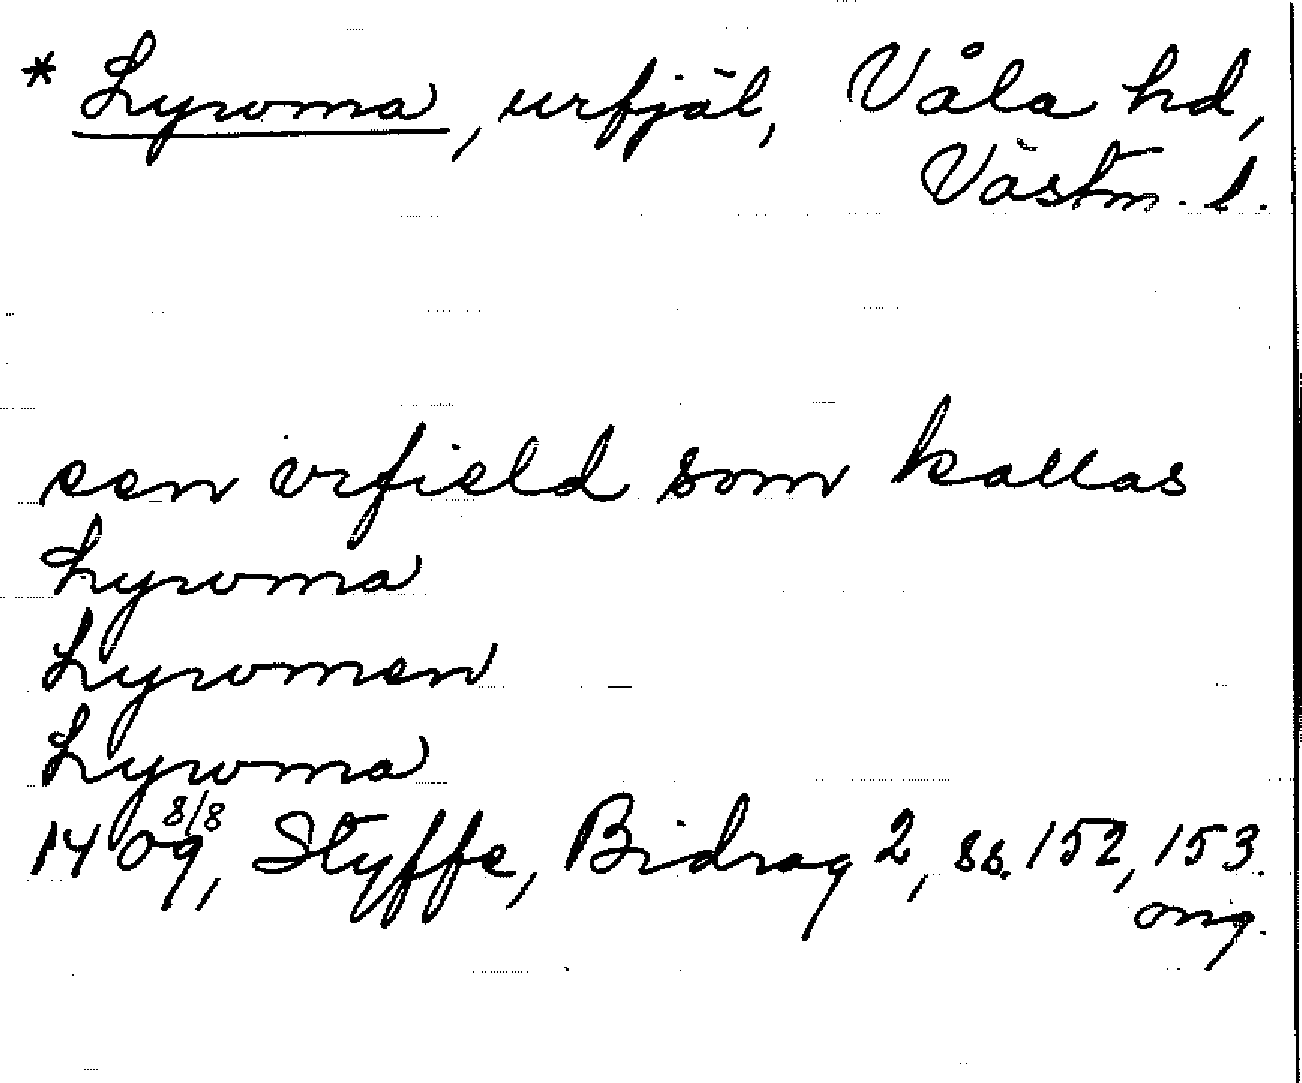 * Lyroma, urfjäl, Våla hd,
Västm. l.
een vrfield som kallas
Lyroma
Lyromen
Lyroma
1409 8/8, Styffe, Bidrag 2, ss. 152, 153.
orig.